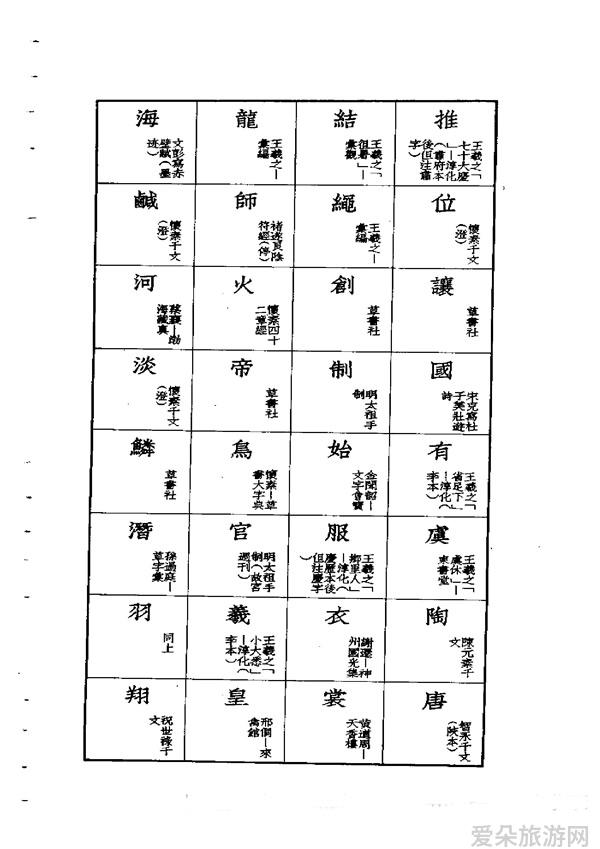 海
文彭寫赤
壁賦(墨
迹)
鹹
懷素千文
(澄)
河
蔡襄—渤
海藏真
淡
懷素千文
(澄)
鱗
草書社
潛
孫過庭—
草字彙
羽
同上
翔
祝世祿千
文
龍
王羲之—
彙編
師
褚遂良陰
符經(停)
火
懷素四十
二章經
帝
草書社
鳥
懷素—草
書大字典
官
明太祖手
制(故宮
週刊)
羲
王羲之「
小大悉」
—淳化(
李本)
皇
邢侗—來
禽館
結
王羲之「
徂暑」—
彙觀
繩
王羲之—
彙編
創
草書社
制
明太祖手
制
始
金聞韶—
文字會寶
服
王羲之「
鄉里人」
—淳化(
慶曆本後
但注慶字
)
衣
謝遷—神
州國光集
裳
黃道周—
天香樓
推
王羲之「
七十大慶
」—淳化
(肅府本
後但注肅
字)
位
懷素千文
(澄)
讓
草書社
國
宋克寫杜
子美壯遊
詩
有
王羲之「
省足下」
—淳化(
李本)
虞
王羲之「
虞休」—
東書堂
陶
陳元素千
文
唐
智永千文
(陝本)
爱朵旅游网